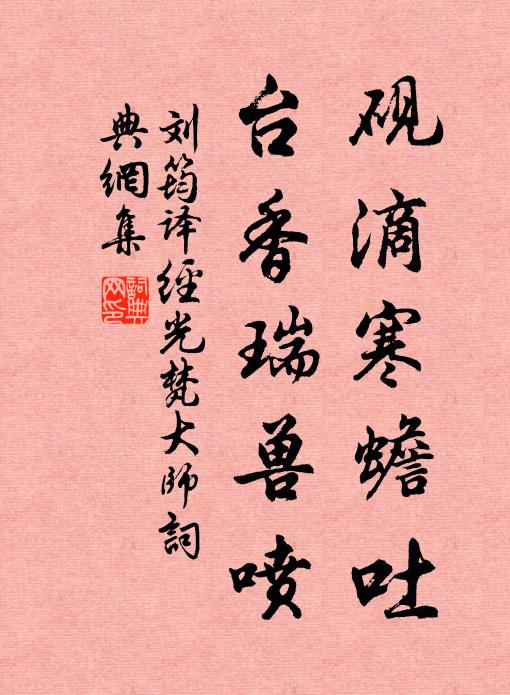 砚滴寒蟾吐
台香瑞兽喷
刘筠译经光梵大师詞
典網集
詞典网印